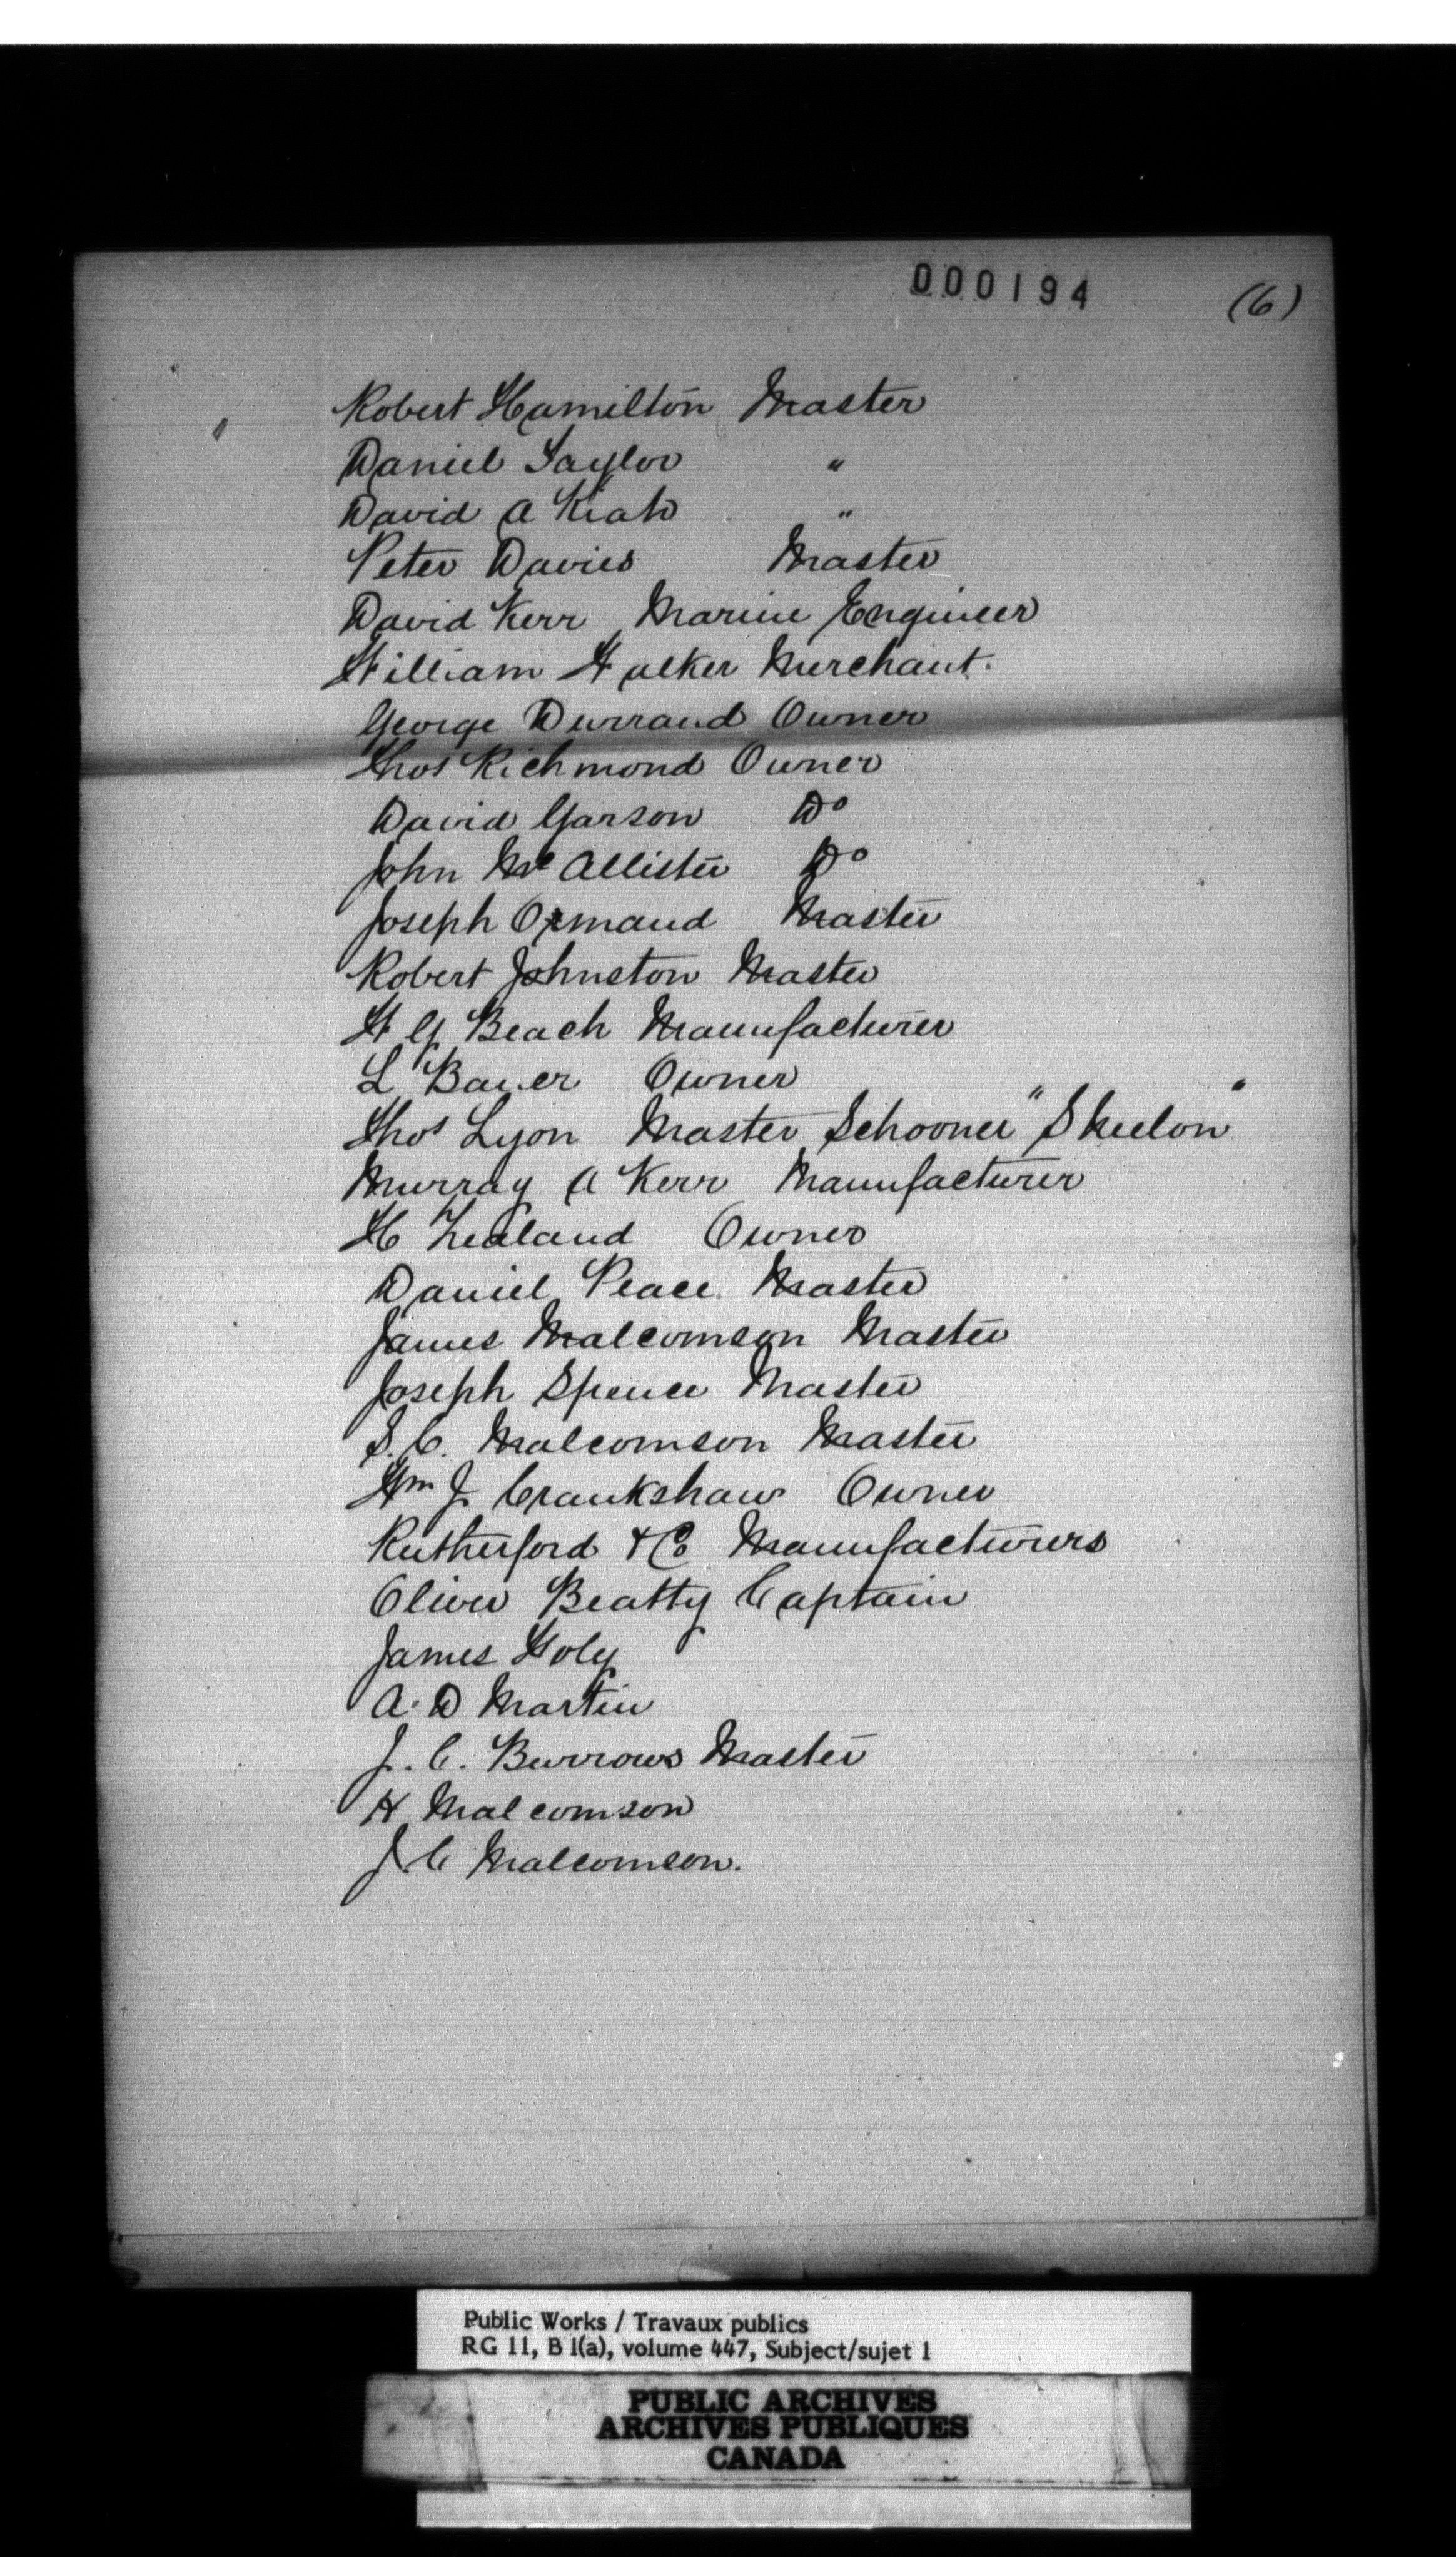 000194
(6)
Robert Hamilton Master
Daniel Taylor "
David A Kiah "
Peter Davies Master
David Kerr Marine Engineer
William Walker Merchant.
George Durrand Owner
Thos Richmond Owner
David Garson Do
John McAllister Do
Joseph Ormand Master
Robert Johnston Master
W G Beach Manufacturer
L Owner
Thos Lyon Master Schooner "
Murray A Kerr Manufacturer
H Zealand Owner
Daniel Peace Master
James Malcomson Master
Joseph Spence Master
S. C. Malcomson Master
Wm J Crankshaw Owner
Rutherford & Co Manufacturers
Oliver Beatty Captain
James
A. D Martin
J. C. Burrows Master
H Malcomson
J. C Malcomson.
Public Works / Travaux publics
RG 11, B 1(a), volume 447, Subject/sujet 1
PUBLIC ARCHIVES
ARCHIVES PUBLIQUES
CANADA